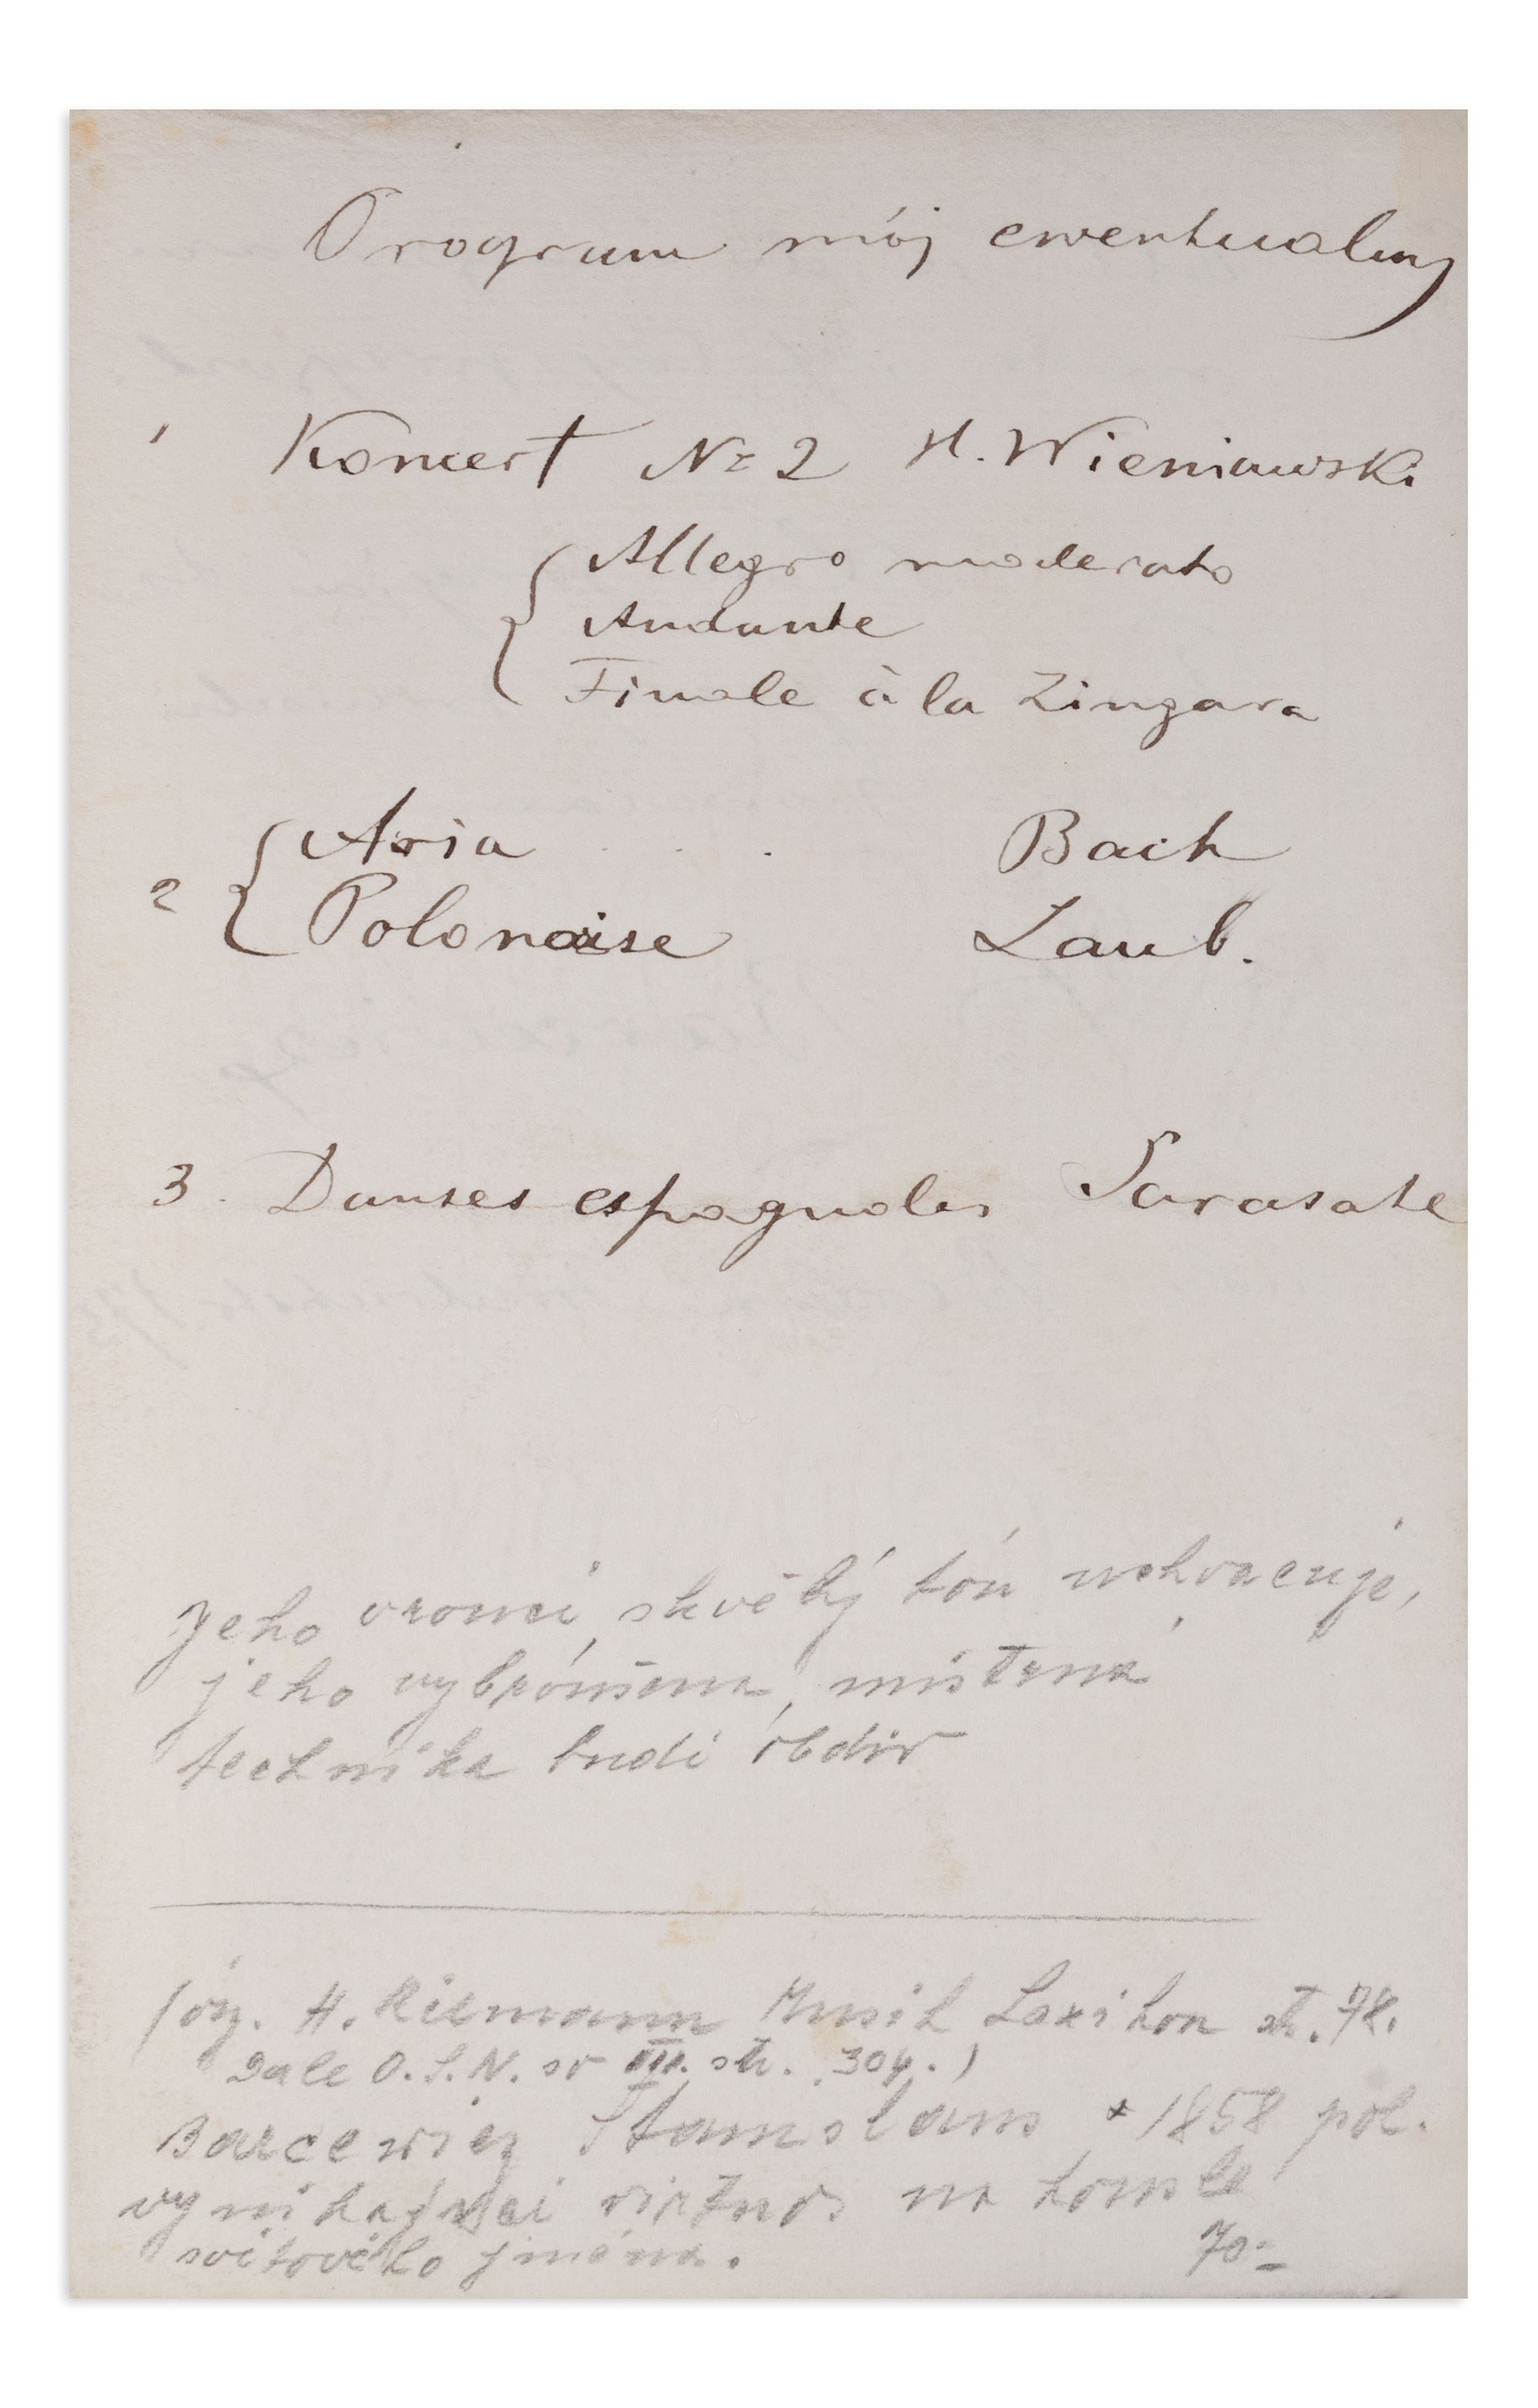 Program mój ewentualny
1 Koncert No 2 H. Wieniawski
Allegro moderato
Andante
Finale à la Zingara
2 Aria . . . Bach
Polonaise Laub.
3. Danses espagnoles Sarasate
Jeho vroucí, skvělý tón uchvacuje,
jeho vybroušená, mistrná
technika budí obdiv
H. Riemann Musik Lexikon str. 78.
Dále O.S.N. sv III. str. 304.)
Barcewicz Stanislaus * 1858 pol.
vynikající virtuos na housle
světového jména.
70.-